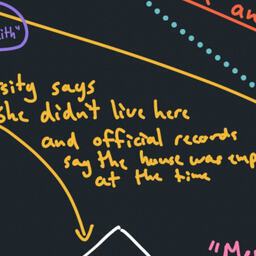 an
ith"
sity says
she didn't live here
and official records
say the house was emp
at the time
"M